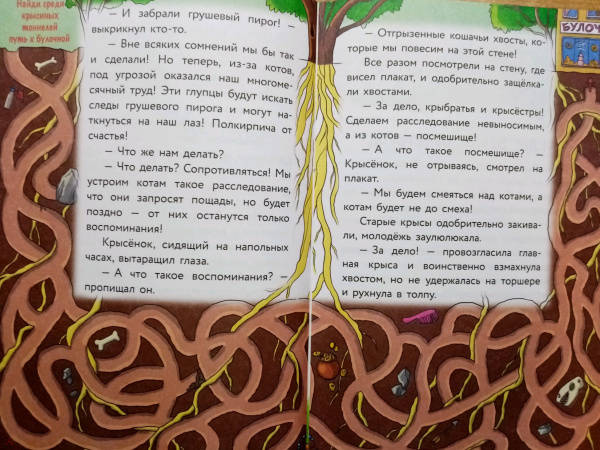 Найди среди
крысиных
тоннелей
путь к булочной
— И забрали грушевый пирог! —
выкрикнул кто-то.
— Вне всяких сомнений мы бы так
и сделали! Но теперь, из-за котов,
под угрозой оказался наш многоме-
сячный труд! Эти глупцы будут искать
следы грушевого пирога и могут на-
ткнуться на наш лаз! Полкирпича от
счастья!
— Что же нам делать?
— Что делать? Сопротивляться! Мы
устроим котам такое расследование,
что они запросят пощады, но будет
поздно — от них останутся только
воспоминания!
Крысёнок, сидящий на напольных
часах, вытаращил глаза.
— А что такое воспоминания? —
пропищал он.
— Отгрызенные кошачьи хвосты, ко-
торые мы повесим на этой стене!
Все разом посмотрели на стену, где
висел плакат, и одобрительно защёлка-
ли хвостами.
— За дело, крыбратья и крысёстры!
Сделаем расследование невыносимым,
а из котов — посмешище!
— А что такое посмешище? —
Крысёнок, не отрываясь, смотрел на
плакат.
— Мы будем смеяться над котами, а
котам будет не до смеха!
Старые крысы одобрительно закива-
ли, молодёжь заулюлюкала.
— За дело! — провозгласила глав-
ная крыса и воинственно взмахнула
хвостом, но не удержалась на торшере
и рухнула в толпу.